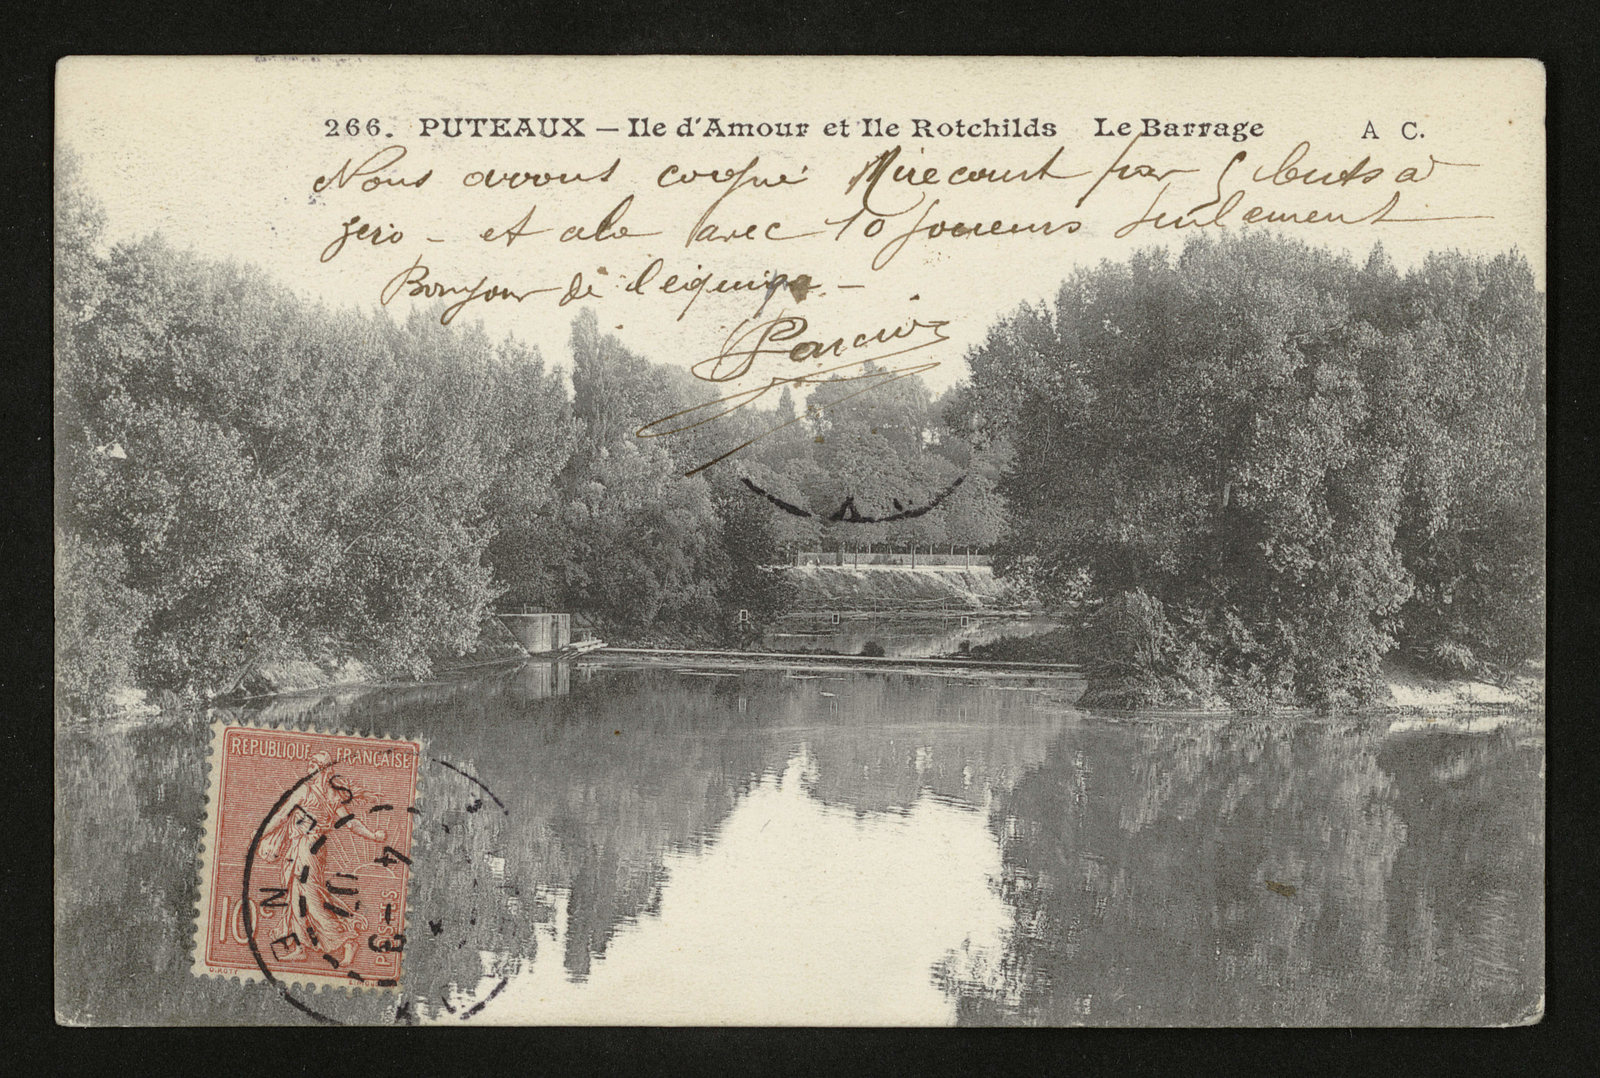 266. PUTEAUX — Ile d'Amour et Ile Rotchilds Le Barrage A C.
Nous avons Mirecourt par 5 buts à
zéro - et cela avec 10 joueurs seulement
Bonjour de l'équipe -
REPUBLIQUE FRANÇAISE
10c
POSTES
O. ROTY
SEINE